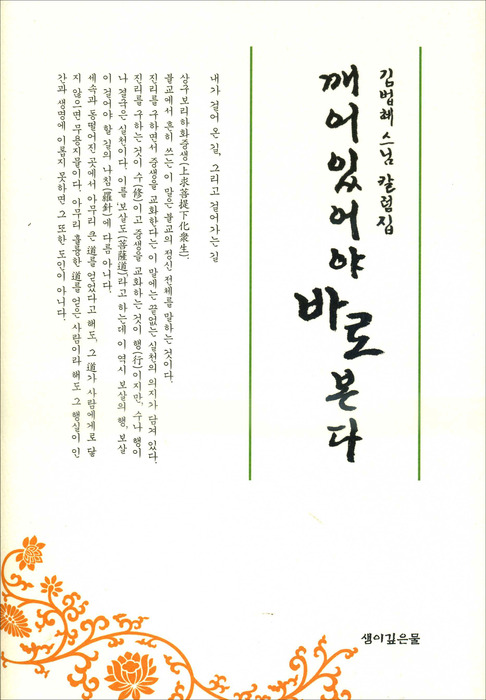 김법혜 스님 칼럼집
깨어있어야 바로 본다
내가 걸어 온 길, 그리고 걸어가는 길
상구보리하화중생(上求菩提下化衆生)
불교에서 흔히 쓰는 이 말은 불교의 정신 전체를 말하는 것이다.
진리를 구하면서 중생을 교화한다는 이 말에는 끝없는 실천의 의지가 담겨 있다.
진리를 구하는 것이 수(修)이고 중생을 교화하는 것이 행(行)이지만, 수나 행이
나 결국은 실천이다. 이를 보살도(菩薩道)라고 하는데 이 역시 보살의 행, 보살
이 걸어야 할 길의 나침(羅針)에 다름 아니다.
세속과 동떨어진 곳에서 아무리 큰 道를 얻었다고 해도, 그 道가 사람에게로 닿
지 않으면 무용지물이다. 아무리 훌륭한 道를 얻은 사람이라 해도 그 행실이 인
간과 생명에 이롭지 못하면 그 또한 도인이 아니다.
샘이깊은물